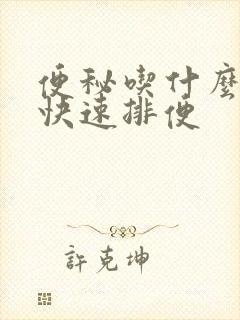 便秘喫什麼
快速排便
許克坤